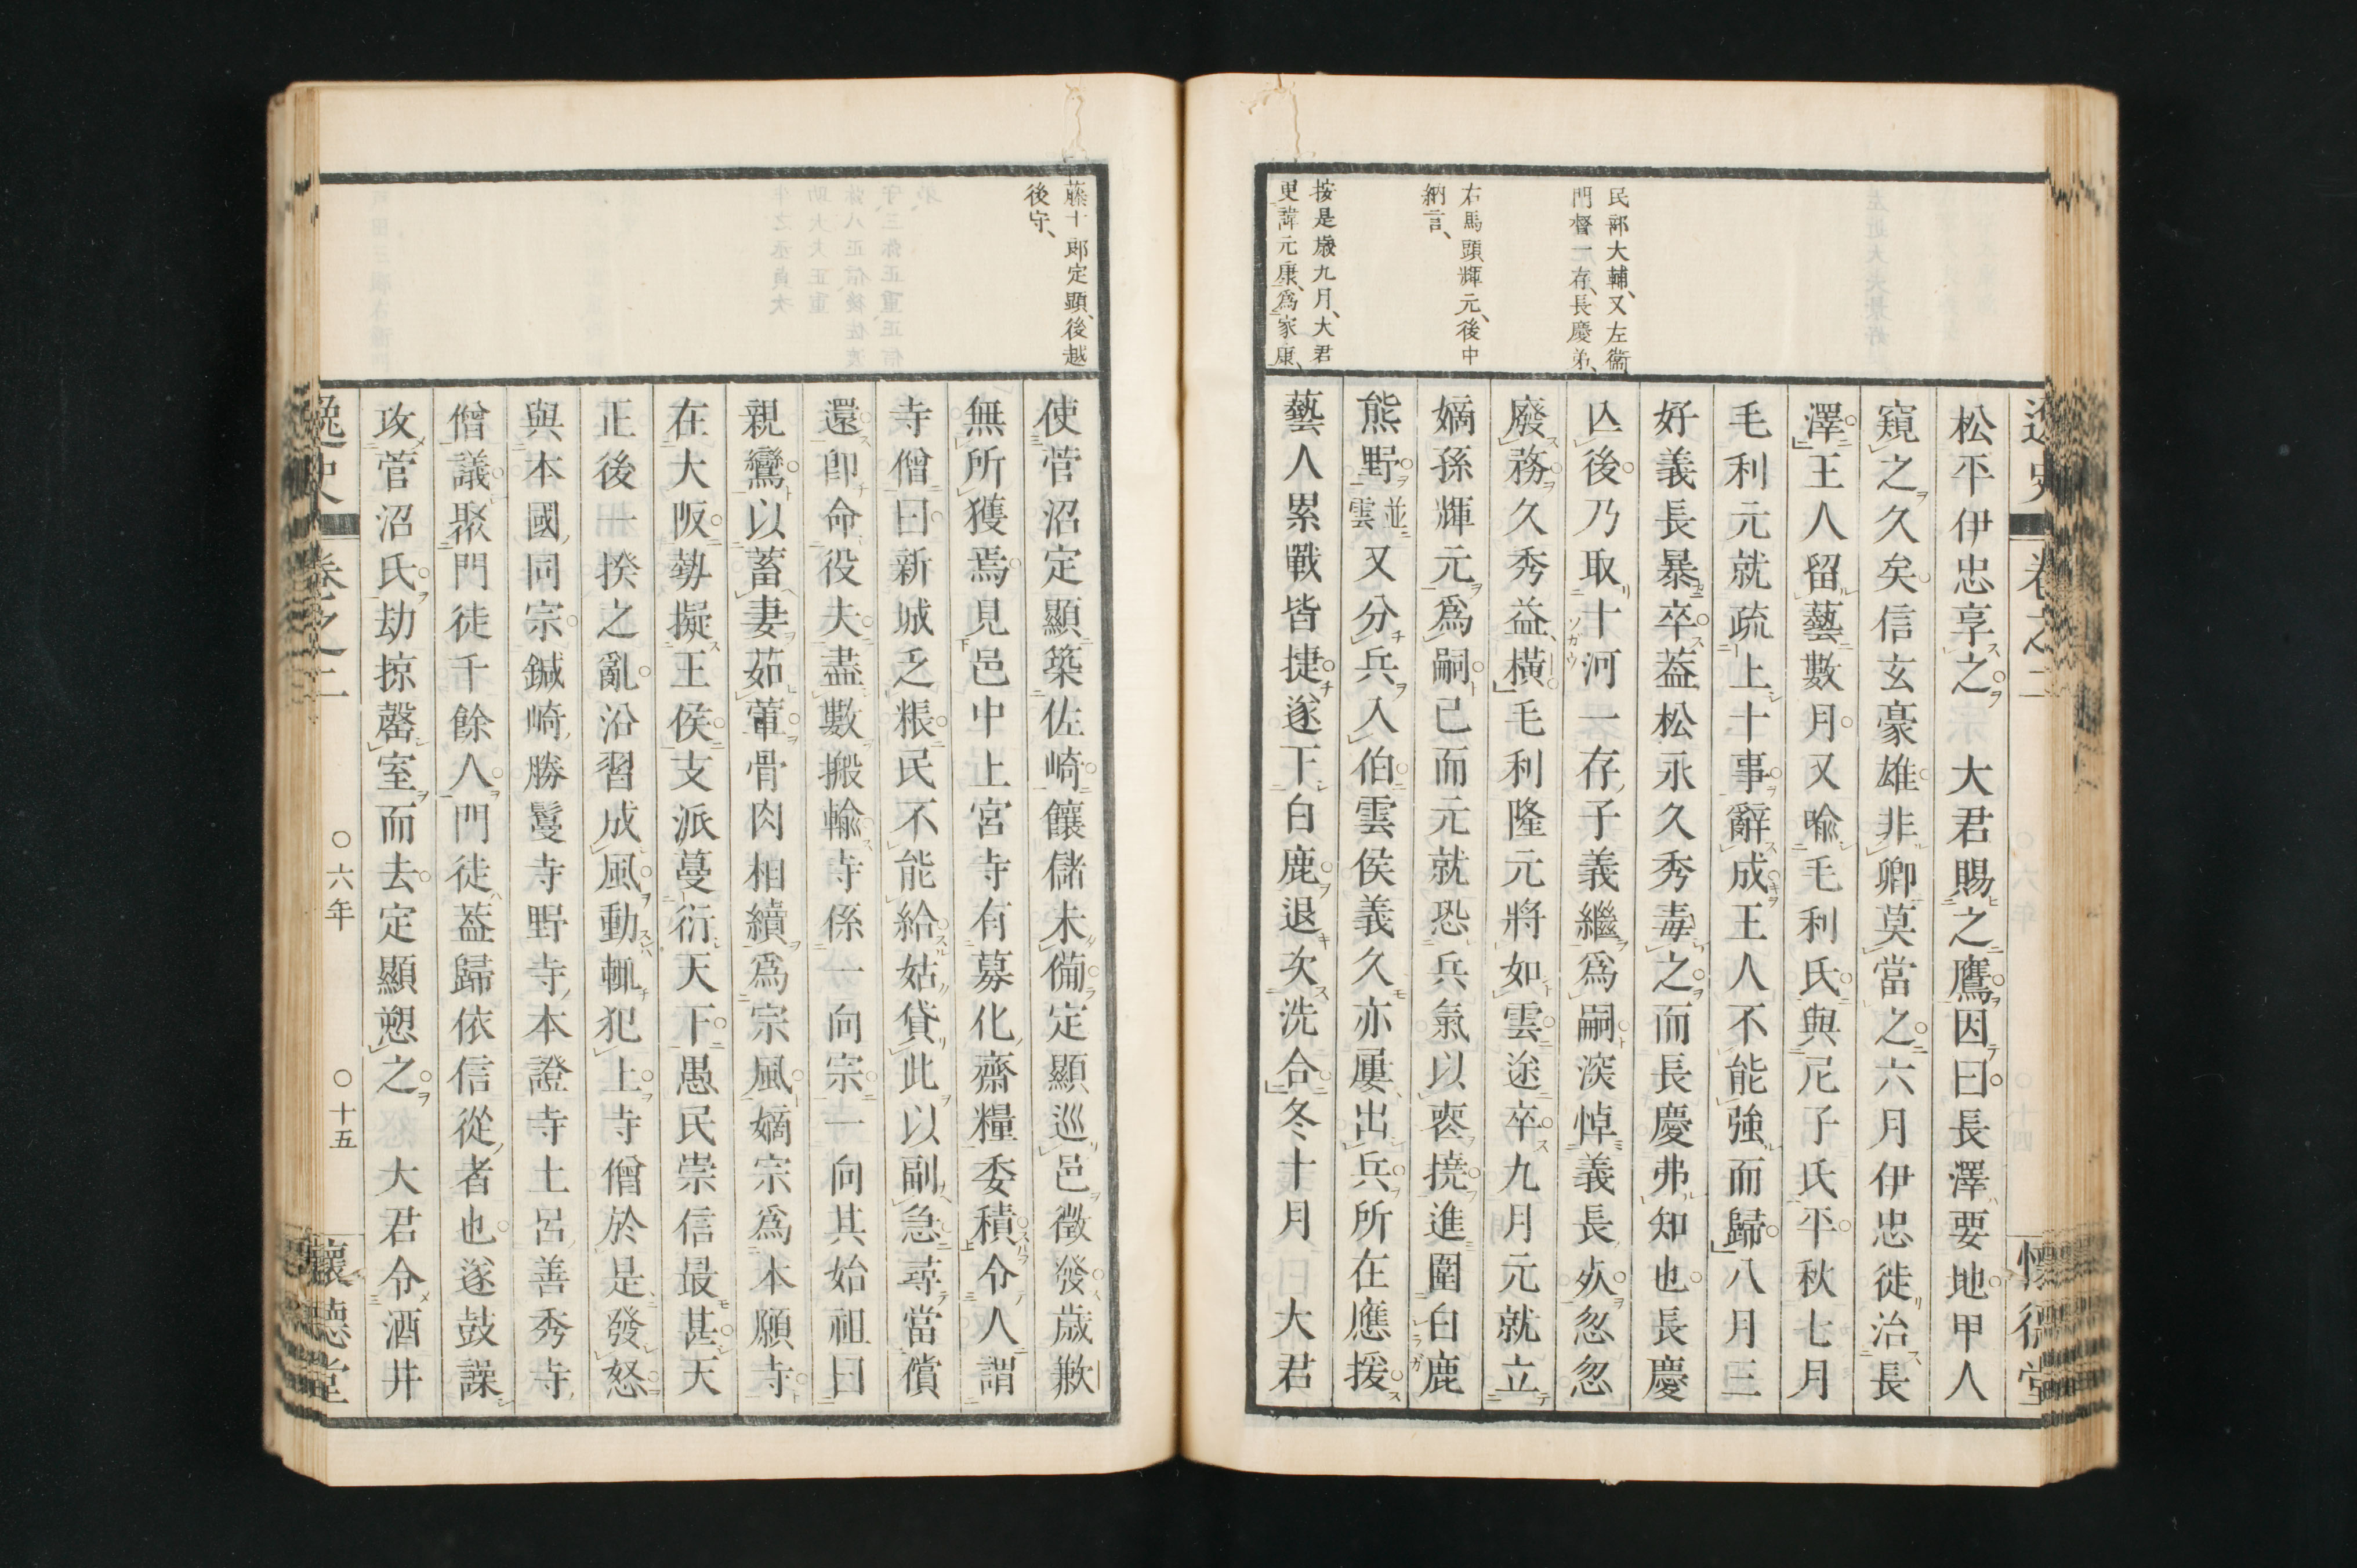 民部大輔、又左衞
門督一存、長慶弟、
右馬頭輝元、後中
納言、
按是歳九月、大君
更諱元康、爲家康、
松平伊忠享之　大君賜之鷹因曰長澤要地甲人
窺之久矣信玄豪雄非卿莫當之六月伊忠徙治長
澤王人留藝數月又喩毛利氏與尼子氏平秋七月
毛利元就疏上十事辭成王人不能強而歸八月三
好義長暴卒葢松永久秀毒之而長慶弗知也長慶
亾後乃取十河一存子義繼爲嗣深悼義長忽忽
廢務久秀益橫毛利隆元將如雲途卒九月元就立
嫡孫輝元爲嗣已而元就恐兵氣以喪撓進圍白鹿
熊野並雲又分兵入伯雲侯義久亦屢出兵所在應援
藝人累戰皆捷遂下白鹿退次洗合冬十月　大君
藤十郎定顯、後越
後守、
使菅沼定顯築佐崎饟儲未備定顯巡邑徵發歳歉
無所獲焉見邑中上宮寺有募化齋糧委積令人謂
寺僧曰新城乏粻民不能給姑貸此以副急尋當償
還卽命役夫盡數搬輸寺係一向宗一向其始祖曰
親鸞以蓄妻茹葷骨肉相續爲宗風嫡宗爲本願寺
在大阪勢擬王侯支派蔓衍天下愚民崇信最甚天
正後一揆之亂沿習成風動輒犯上寺僧於是發怒
與本國同宗鍼崎勝鬘寺野寺本證寺土呂善秀寺
僧議聚門徒千餘人門徒葢歸依信從者也遂鼓譟
攻菅沼氏劫掠罄室而去定顯愬之　大君令酒井
逸史　卷之二　〇六年　〇十五　懷德堂